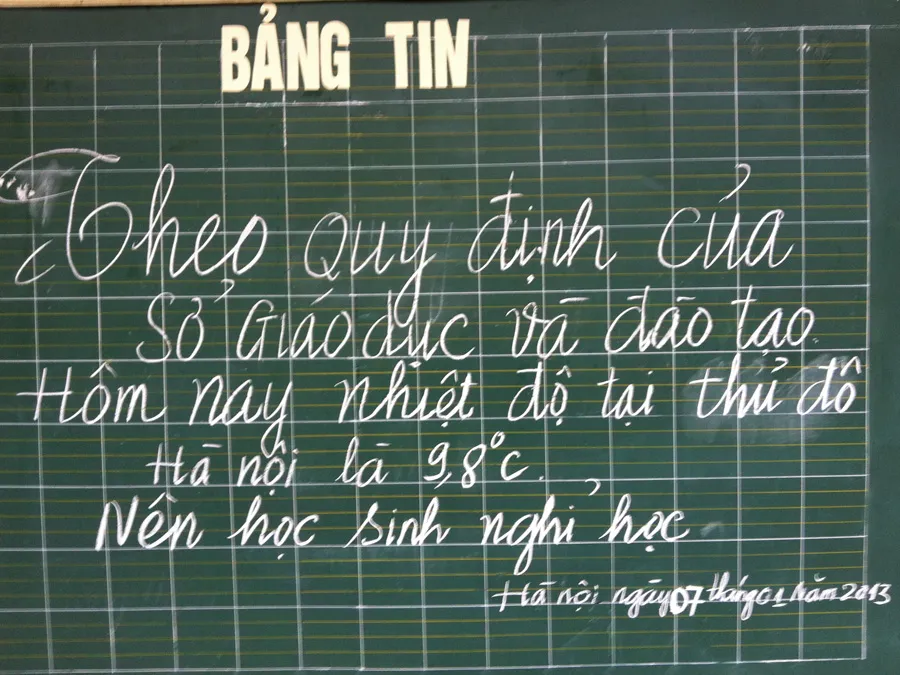 BẢNG TIN
Theo quy định của
Sở Giáo dục và đào tạo.
Hôm nay nhiệt độ tại thủ đô
Hà nội là 9,8°C.
Nên học sinh nghỉ học
Hà nội ngày 07 tháng 01 năm 2013